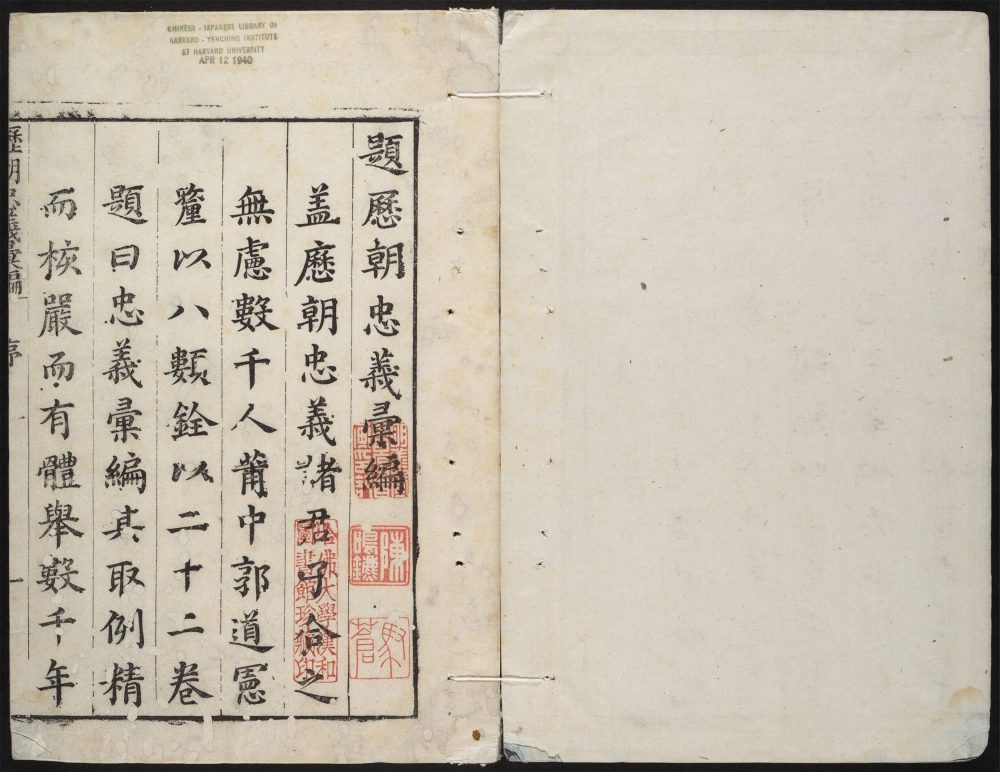 CHINESE - JAPANESE LIBRARY OF
HARVARD - YENCHING INSTITUTE
AT HARVARD UNIVERSITY
APR 12 1940
題歷朝忠義彙編
盖歷朝忠義諸君子合之
無慮數千人莆中郭道憲
釐以八類銓以二十二卷
題曰忠義彙編其取例精
而核嚴而有體舉數千年
歷朝忠義彙編
序
一
哈佛大學漢和
圖書館珍藏印